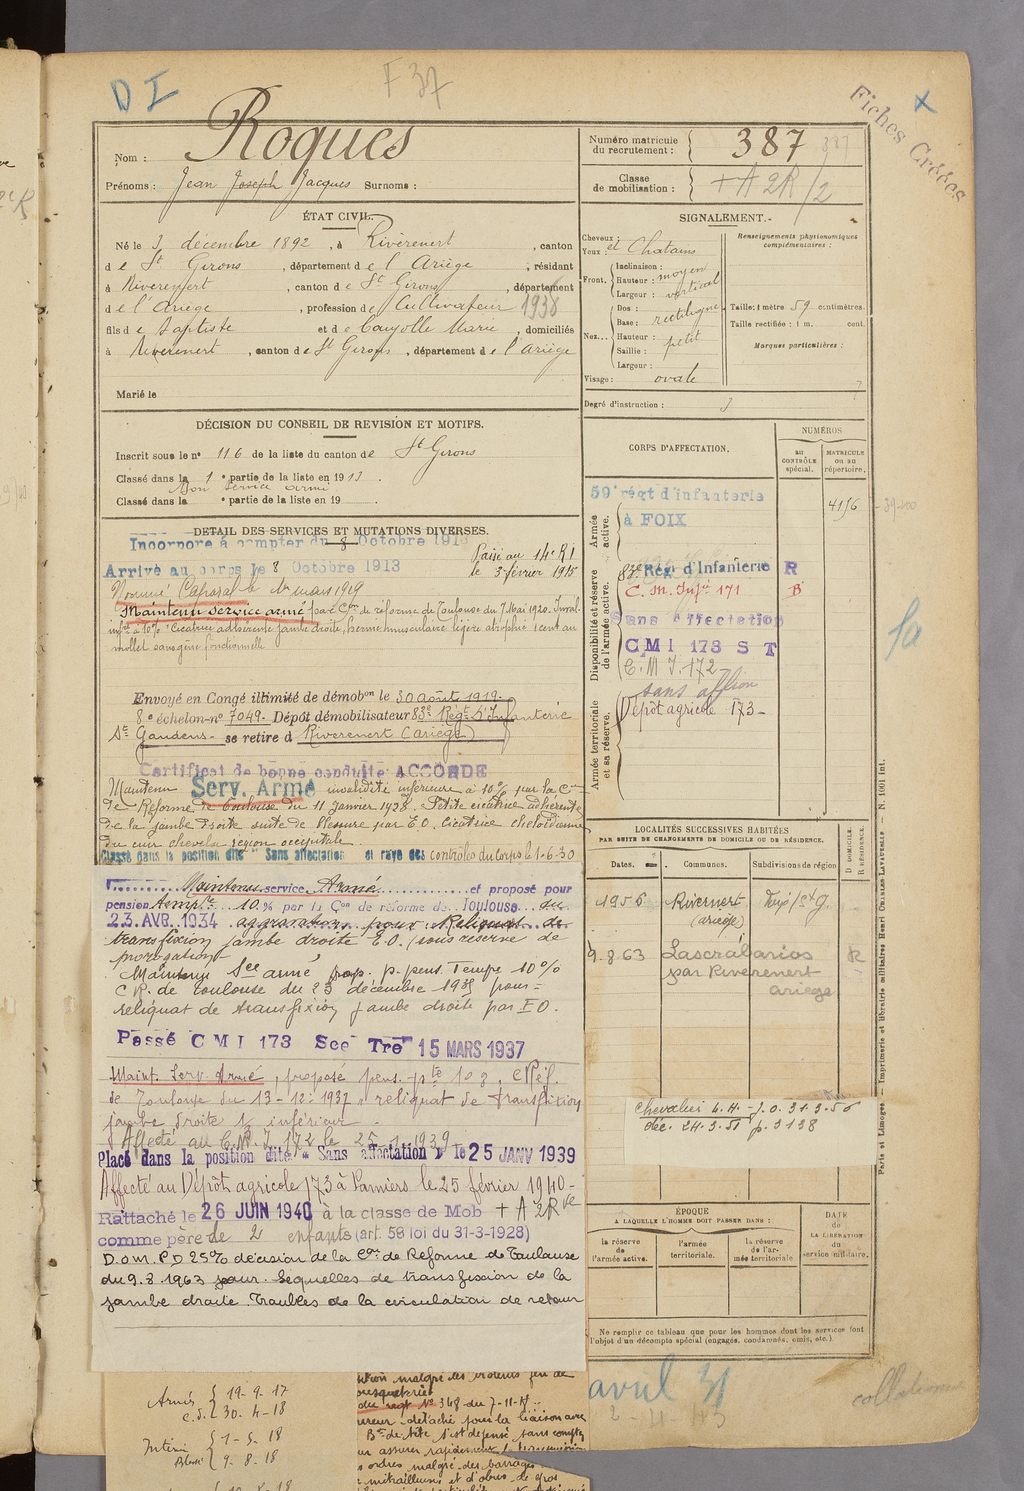 D I
F 37
Fiches Créées
x
Nom : Roques
Prénoms : Jean Joseph Jacques Surnoms :
Numéro matricule
du recrutement : 387
387
Classe
de mobilisation : + A 2R/2
ÉTAT CIVIL.
Né le 3 décembre 1892, à Rivèrenert, canton
de St Girons, département de l'Ariège, résidant
à Rivèrenert, canton de St Girons, département
de l'Ariège, profession de Cultivateur 1936
fils de Baptiste et de Caujolle Marie, domiciliés
à Rivèrenert, canton de St Girons, département de l'Ariège
Marié le
SIGNALEMENT.
Cheveux :
Yeux : et Chatains
Front. Inclinaison :
Hauteur : moyen
Largeur : vertical
Nez... Dos :
Base : rectiligne
Hauteur :
Saillie : petit
Largeur :
Visage : ovale
Renseignements physionomiques
complémentaires :
Taille : 1 mètre 59 centimètres.
Taille rectifiée : 1 m. cent.
Marques particulières :
Degré d'instruction : 3
DÉCISION DU CONSEIL DE REVISION ET MOTIFS.
Inscrit sous le n° 116 de la liste du canton de St Girons
Classé dans la 1e partie de la liste en 1913.
Bon service armé
Classé dans la e partie de la liste en 19
DETAIL DES SERVICES ET MUTATIONS DIVERSES.
Incorporé à compter du 8 Octobre 1913
Arrivé au corps le 8 Octobre 1913
Passé au 14e R I
le 3 février 1915
Nommé Caporal le 1er mars 1919
Maintenu service armé par Con de réforme de Toulouse du 7 Mai 1920. Inval.
infre à 10% Cicatrice adhérente jambe droite, hernie musculaire légère atrophie 1 cent au
mollet sans gêne fonctionnelle
Envoyé en Congé illimité de démobon le 30 août 1919.
8e échelon - no 7049. Dépôt démobilisateur 83e Régt d'Infanterie
St Gaudens - se retire à Rivèrenert (Ariège)
Certificat de bonne conduite ACCORDÉ
Maintenu Serv. Armé invalidité inférieure à 10% par la Con
de Réforme de Toulouse du 11 Janvier 1938. Petite cicatrice adhérente
de la jambe droite suite de blessure par E.O. Cicatrice chéloïdienne
du cuir chevelu région occipitale.
Classé dans la position dite "Sans affectation" et rayé des contrôles du corps le 1-6-30
Maintenu service Armé et proposé pour
pension tempre 10 % par la Con de réforme de Toulouse du
23. AVR. 1934 aggravation pour : Reliquat de
transfixion jambe droite E.O. (sous réserve de
prorogation
Maintenu Sce armé prop. p. pens. Tempe 10%
C.R. de Toulouse du 23 décembre 1935 pour =
reliquat de transfixion jambe droite par E O.
Passé C M I 173 See Tre 15 MARS 1937
Maint. Serv. Armé, proposé pens. pte 10%. C Réf.
de Toulouse du 13-12-1937 reliquat de transfixion
jambe droite 1/3 inférieur.
Affecté au C.M. I 172 le 25.1.1939
Placé dans la position dite "Sans affectation" le 25 JANV 1939
Affecté au Dépôt agricole 173 à Pamiers le 25 février 1940 -
Rattaché le 26 JUIN 1940 à la classe de Mob + A 2Rve
comme père de 2 enfants (art. 58 loi du 31-3-1928)
D.O.M. P.D 25% décision de la Con de Réforme de Toulouse
du 9.8.1963 pour. Séquelles de transfixion de la
jambe droite. Troubles de la circulation de retour
CORPS D'AFFECTATION.
NUMÉROS
au CONTRÔLE spécial.
MATRICULE ou au répertoire.
Armée active.
59e régt d'infanterie
à FOIX
4156
Disponibilité et réserve de l'armée active.
83e Régt d'Infanterie R
C. M. Infie 171 B
Sans affectation
CMI 173 S T
C. M I. 172
sans affion
Armée territoriale et sa réserve.
Dépôt agricole 173 -
fa
LOCALITÉS SUCCESSIVES HABITÉES
PAR SUITE DE CHANGEMENTS DE DOMICILE OU DE RÉSIDENCE.
Dates. Communes. Subdivisions de région
D DOMICILE. R RÉSIDENCE.
1956 Rivèrnert
(ariège)
9.8.63 Lascrabarios R
par Rivèrenert
ariège
Chevalier L.H. - J.O. 31-3-56
déc. 24.3.51 p. 3138
ÉPOQUE
A LAQUELLE L'HOMME DOIT PASSER DANS :
la réserve de l'armée active.
l'armée territoriale.
la réserve de l'armée territoriale
DATE de LA LIBÉRATION du service militaire.
Ne remplir ce tableau que pour les hommes dont les services font
l'objet d'un décompte spécial (engagés, condamnés, omis, etc.).
Paris et Limoges. — Imprimerie et librairie militaires Henri Charles-Lavauzelle — N. 1001 int.
avril 31
2-11-43
Armés 19-9-17
C.S. 30-4-18
Intéri 1-5-18
Blessé 9-8-18
malgré les violents feu de
du régt No 348 du 7-11-17
détaché pour la liaison avec
Bon de tête s'est dépensé sans compter
assurer rapidement la transmission
ordres malgré des barrages
mitrailleuses et d'obus de gros